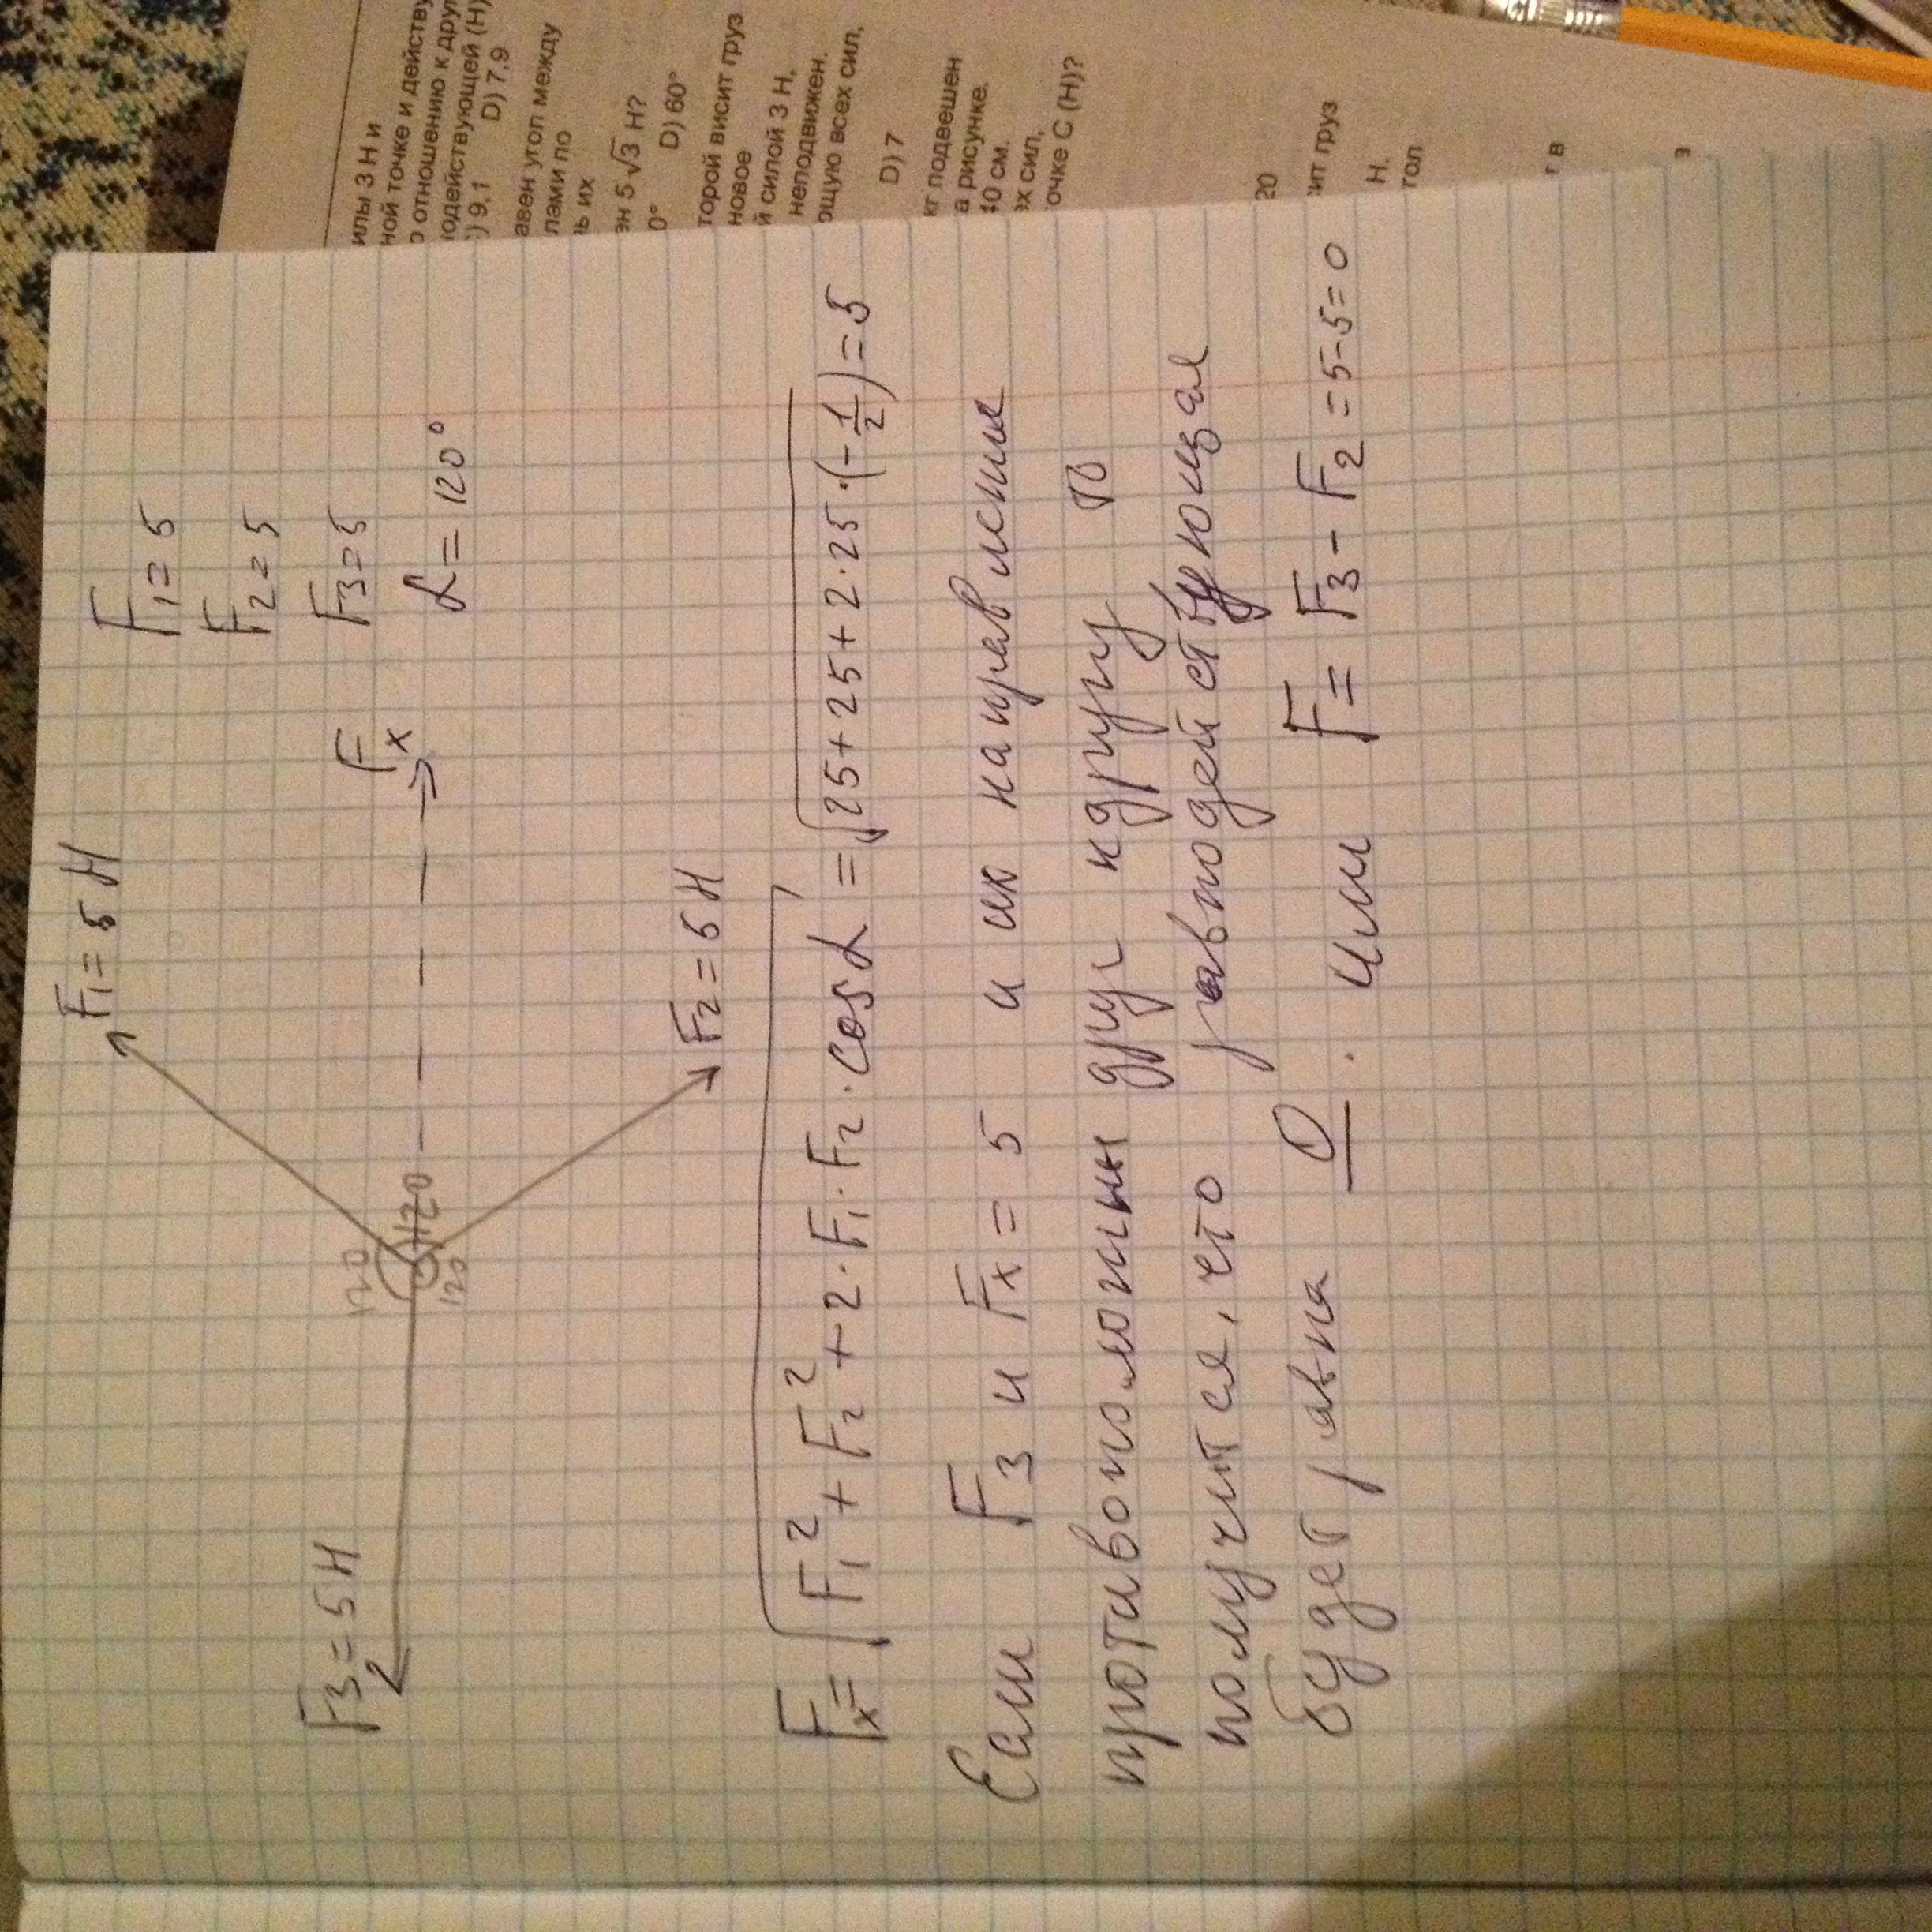 илы 3 Н и
ной точке и действу
о отношению к друг
нодействующей (Н)
) 9,1 D) 7,9
авен угол между
лами по
ь их
ен 5 √3 Н?
0° D) 60°
торой висит груз
новое
й силой 3 Н,
неподвижен.
ющую всех сил,
D) 7
кг подвешен
а рисунке.
40 см.
ех сил,
очке С (Н)?
20
ит груз
Н.
гол
г в
F₁ = 5 Н
F₁ = 5
F₂ = 5
F₃ = 5
α = 120°
F₃ = 5 Н
Fₓ
120
120
120
F₂ = 5 Н
Fₓ = √(F₁² + F₂² + 2·F₁·F₂·cosα) = √(25+25+2·25·(-1/2)) = 5
Если F₃ и Fₓ = 5 и их направления
противоположны друг к другу то
получится, что равнодействующая
будет равна 0. Или F = F₃ - F₂ = 5-5=0